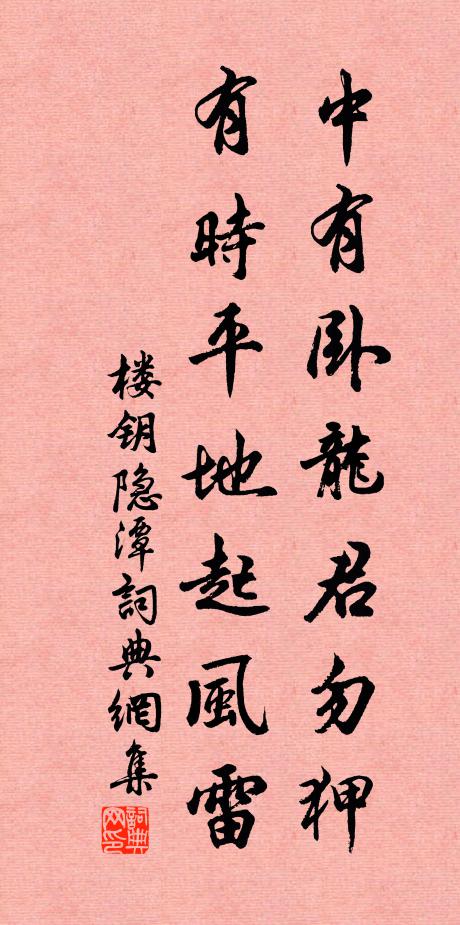 中有卧龍君勿狎
有時平地起風雷
楼钥隐潭詞典網集
詞典網印